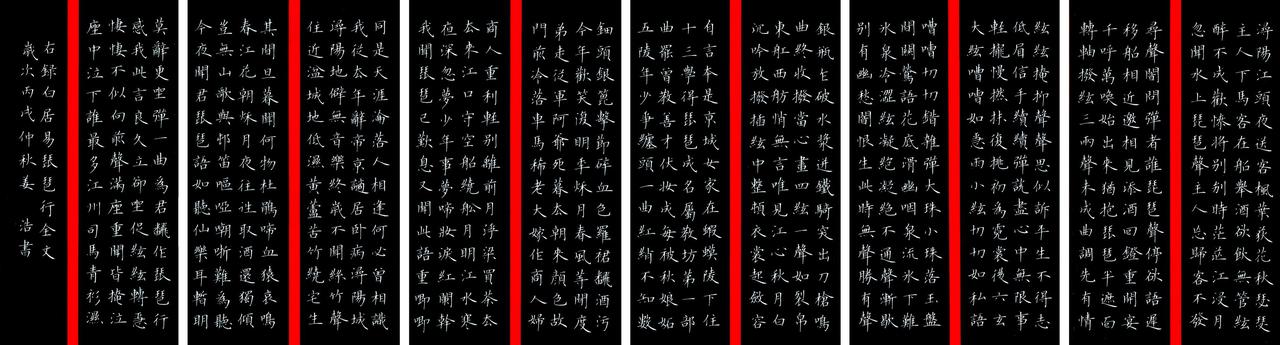 潯陽江頭夜送客楓葉荻花秋瑟瑟
主人下馬客在船舉酒欲飲無管絃
醉不成歡慘將別別時茫茫江浸月
忽聞水上琵琶聲主人忘歸客不發
尋聲闇問彈者誰琵琶聲停欲語遲
移船相近邀相見添酒回燈重開宴
千呼萬喚始出來猶抱琵琶半遮面
轉軸撥絃三兩聲未成曲調先有情
絃絃掩抑聲聲思似訴平生不得志
低眉信手續續彈說盡心中無限事
輕攏慢撚抹復挑初為霓裳後六幺
大絃嘈嘈如急雨小絃切切如私語
嘈嘈切切錯雜彈大珠小珠落玉盤
間關鶯語花底滑幽咽泉流氷下難
氷泉冷澀絃凝絕凝絕不通聲漸歇
別有幽愁闇恨生此時無聲勝有聲
銀瓶乍破水漿迸鐵騎突出刀槍鳴
曲終收撥當心畫四絃一聲如裂帛
東船西舫悄無言唯見江心秋月白
沉吟放撥插絃中整頓衣裳起斂容
自言本是京城女家在蝦蟆陵下住
十三學得琵琶成名屬教坊第一部
曲罷曾教善才伏妝成每被秋娘妒
五陵年少爭纏頭一曲紅綃不知數
鈿頭銀篦擊節碎血色羅裙翻酒污
今年歡笑復明年秋月春風等閒度
弟走從軍阿爺死暮去朝來顏色故
門前冷落車馬稀老大嫁作商人婦
商人重利輕別離前月浮梁買茶去
去來江口守空船繞船明月江水寒
夜深忽夢少年事夢啼妝淚紅闌干
我聞琵琶已歎息又聞此語重唧唧
同是天涯淪落人相逢何必曾相識
我從去年辭帝京謫居臥病潯陽城
潯陽地僻無音樂終歲不聞絲竹聲
住近湓城地低濕黃蘆苦竹繞宅生
其間旦暮聞何物杜鵑啼血猿哀鳴
春江花朝秋月夜往往取酒還獨傾
豈無山歌與村笛嘔啞嘲哳難為聽
今夜聞君琵琶語如聽仙樂耳暫明
莫辭更坐彈一曲為君翻作琵琶行
感我此言良久立卻坐促絃絃轉急
悽悽不似向前聲滿座重聞皆掩泣
座中泣下誰最多江州司馬青衫濕
右録白居易琵琶行全文
歲次丙戌仲秋姜浩書